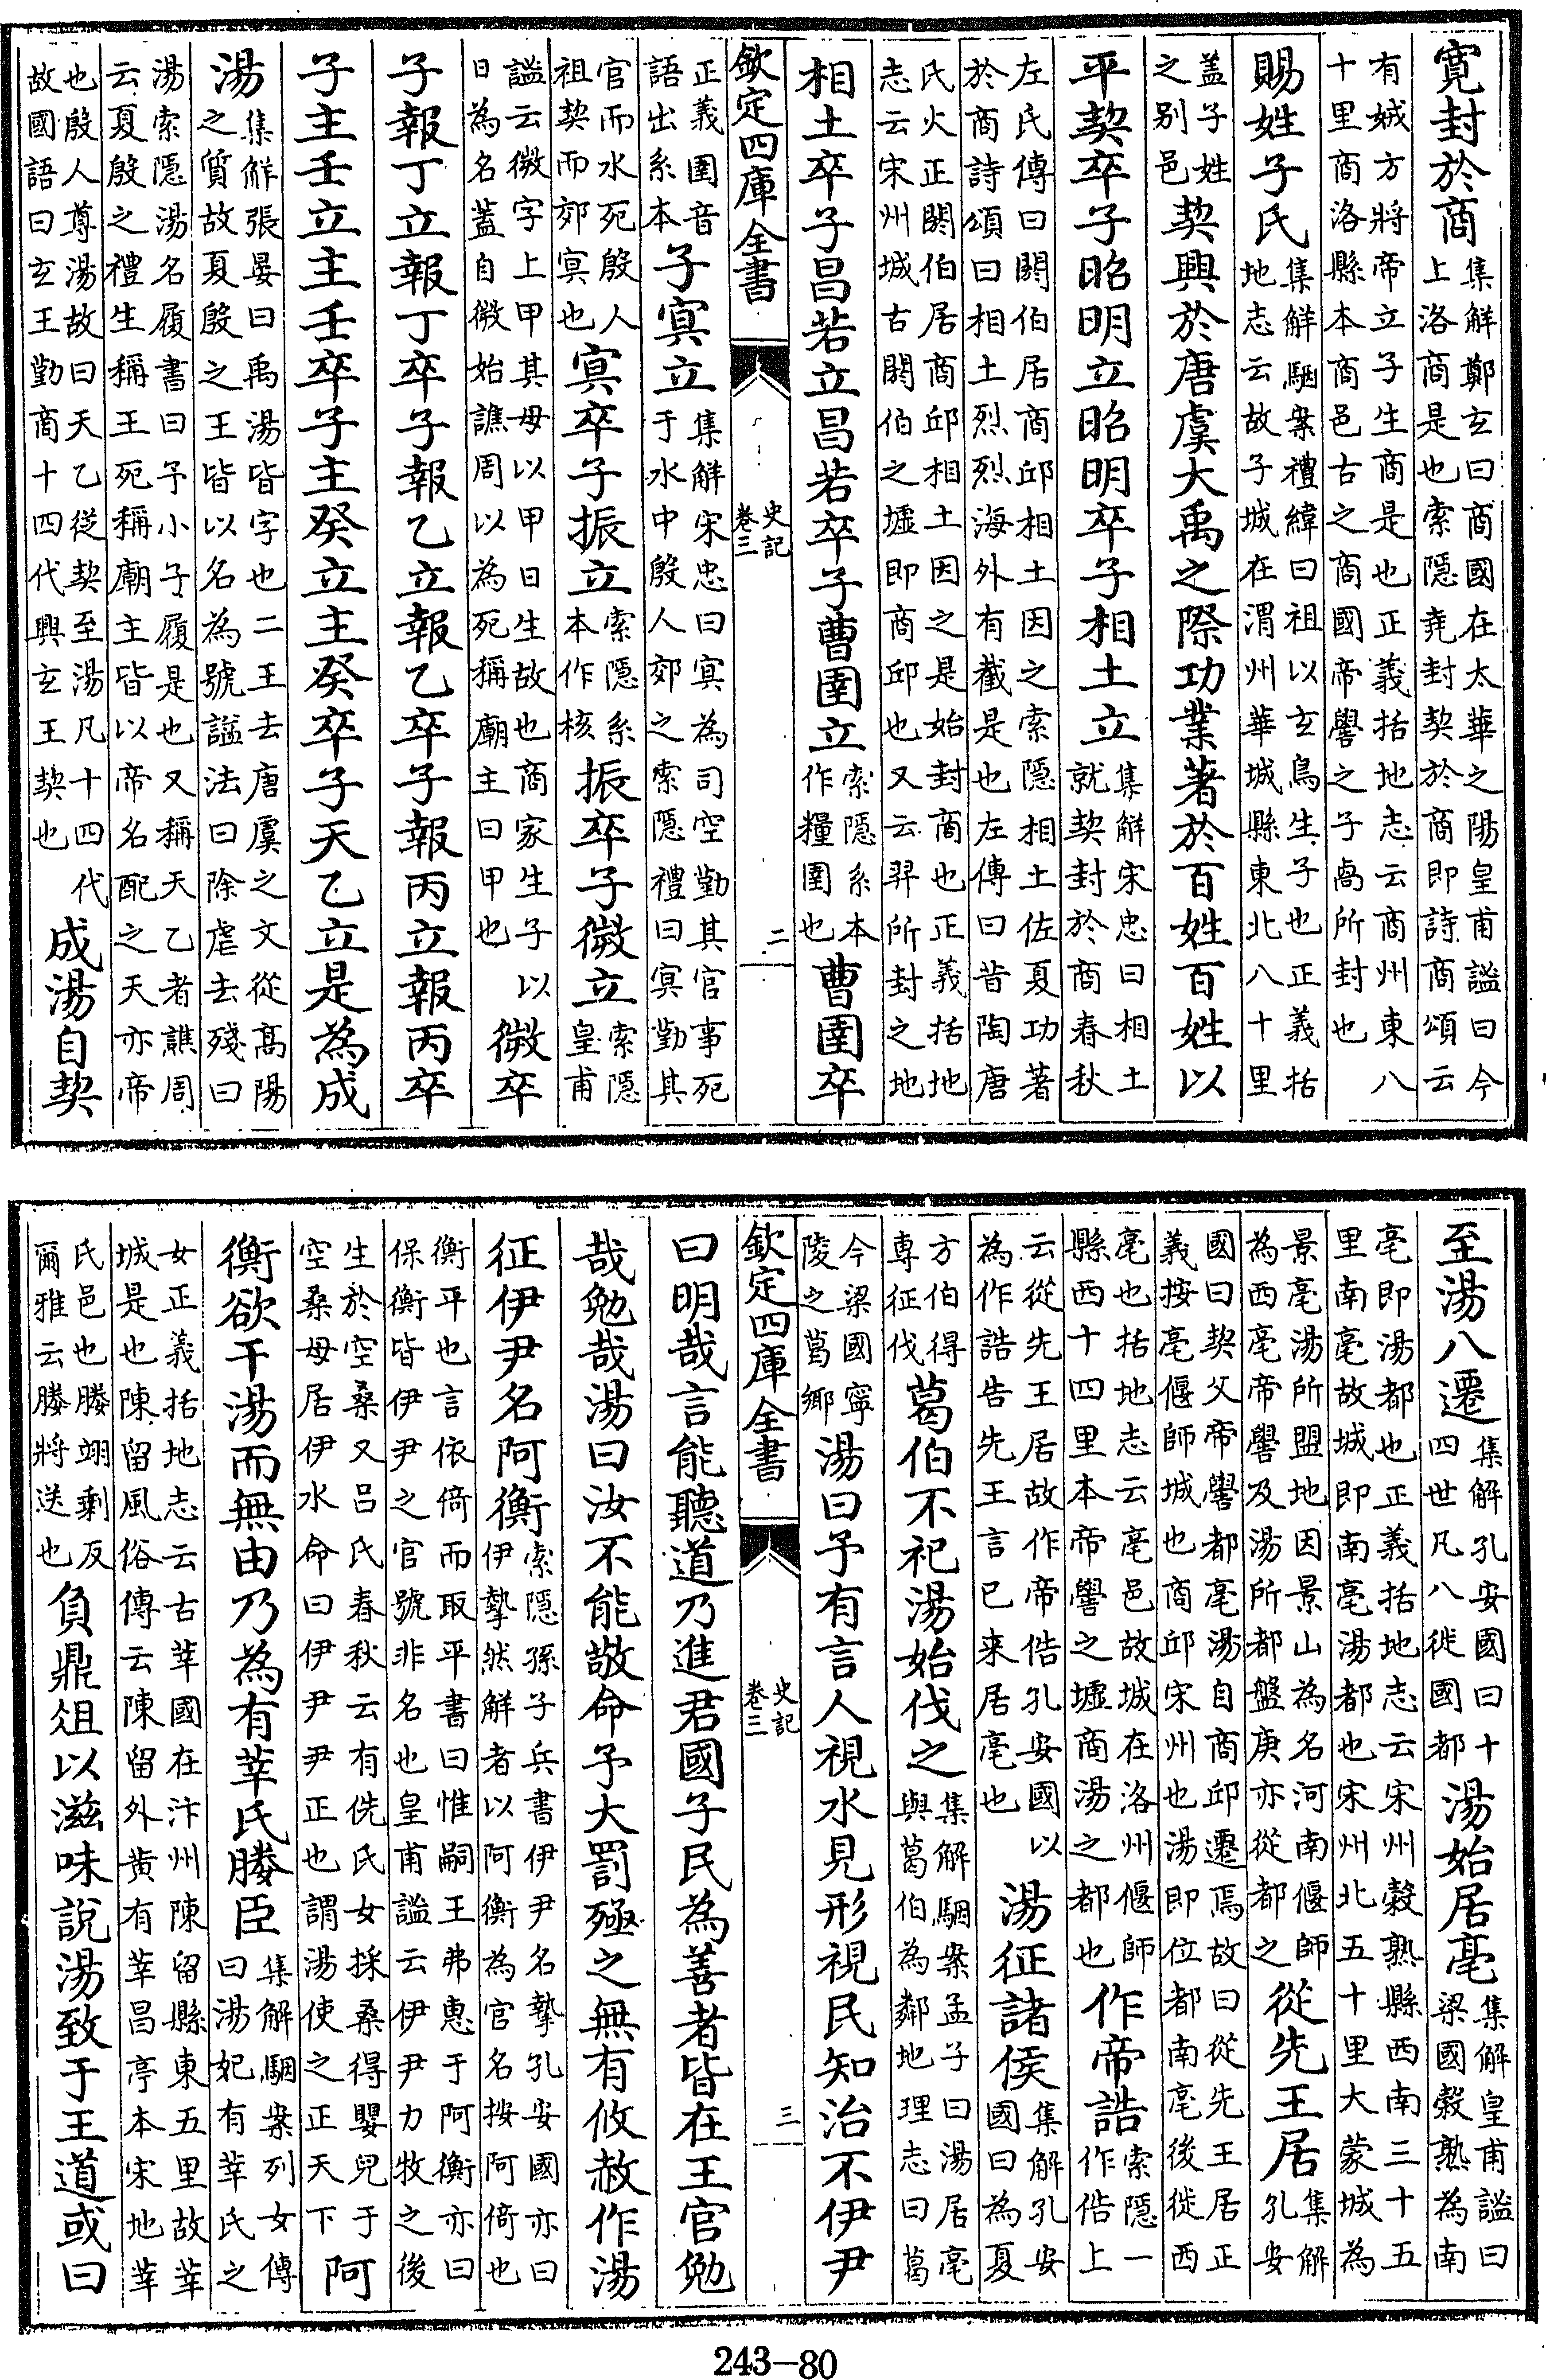 寛封於商集解鄭玄曰商國在太華之陽皇甫謐曰今上洛商是也索隱堯封契於商即詩商頌云
有娀方將帝立子生商是也正義括地志云商州東八十里商洛縣本商邑古之商國帝嚳之子卨所封也
賜姓子氏集解駰案禮緯曰祖以玄鳥生子也正義括地志云故子城在渭州華城縣東北八十里
盖子姓之别邑契興於唐虞大禹之際功業著於百姓百姓以
平契卒子昭明立昭明卒子相土立集解宋忠曰相土就契封於商春秋
左氏傳曰閼伯居商邱相土因之索隱相土佐夏功著於商詩頌曰相土烈烈海外有截是也左傳曰昔陶唐
氏火正閼伯居商邱相土因之是始封商也正義括地志云宋州城古閼伯之墟即商邱也又云羿所封之地
相土卒子昌若立昌若卒子曹圉立索隱系本作糧圉也曹圉卒
欽定四庫全書 史記卷三 二
正義圉音語出系本子冥立集解宋忠曰冥為司空勤其官事死于水中殷人郊之索隱禮曰冥勤其
官而水死殷人祖契而郊冥也冥卒子振立索隱系本作核振卒子微立索隱皇甫
謚云微字上甲其母以甲日生故也商家生子以日為名蓋自微始譙周以為死稱廟主曰甲也微卒
子報丁立報丁卒子報乙立報乙卒子報丙立報丙卒
子主壬立主壬卒子主癸立主癸卒子天乙立是為成
湯集解張晏曰禹湯皆字也二王去唐虞之文從高陽之質故夏殷之王皆以名為號謚法曰除虐去殘曰
湯索隱湯名履書曰予小子履是也又稱天乙者譙周云夏殷之禮生稱王死稱廟主皆以帝名配之天亦帝
也殷人尊湯故曰天乙從契至湯凡十四代故國語曰玄王勤商十四代興玄王契也成湯自契
至湯八遷集解孔安國曰十四世凡八徙國都湯始居亳集解皇甫謐曰梁國穀熟為南
亳即湯都也正義括地志云宋州穀熟縣西南三十五里南亳故城即南亳湯都也宋州北五十里大蒙城為
景亳湯所盟地因景山為名河南偃師為西亳帝嚳及湯所都盤庚亦從都之從先王居集解孔安
國曰契父帝嚳都亳湯自商邱遷焉故曰從先王居正義按亳偃師城也商邱宋州也湯即位都南亳後徙西
亳也括地志云亳邑故城在洛州偃師縣西十四里本帝嚳之墟商湯之都也作帝誥索隱一作俈上
云從先王居故作帝俈孔安國以為作誥告先王言已來居亳也湯征諸侯集解孔安國曰為夏
方伯得專征伐葛伯不祀湯始伐之集解駰案孟子曰湯居亳與葛伯為鄰地理志曰葛
今梁國寧陵之葛鄉湯曰予有言人視水見形視民知治不伊尹
欽定四庫全書 史記卷三 三
曰明哉言能聽道乃進君國子民為善者皆在王官勉
哉勉哉湯曰汝不能敬命予大罰殛之無有攸赦作湯
征伊尹名阿衡索隱孫子兵書伊尹名摯孔安國亦曰伊摯然解者以阿衡為官名按阿倚也
衡平也言依倚而取平書曰惟嗣王弗惠于阿衡亦曰保衡皆伊尹之官號非名也皇甫謐云伊尹力牧之後
生於空桑又吕氏春秋云有侁氏女採桑得嬰兒于空桑母居伊水命曰伊尹尹正也謂湯使之正天下阿
衡欲干湯而無由乃為有莘氏媵臣集解駰案列女傳曰湯妃有莘氏之
女正義括地志云古莘國在汴州陳留縣東五里故莘城是也陳留風俗傳云陳留外黄有莘昌亭本宋地莘
氏邑也媵翊剩反爾雅云媵將送也負鼎俎以滋味說湯致于王道或曰
243-80